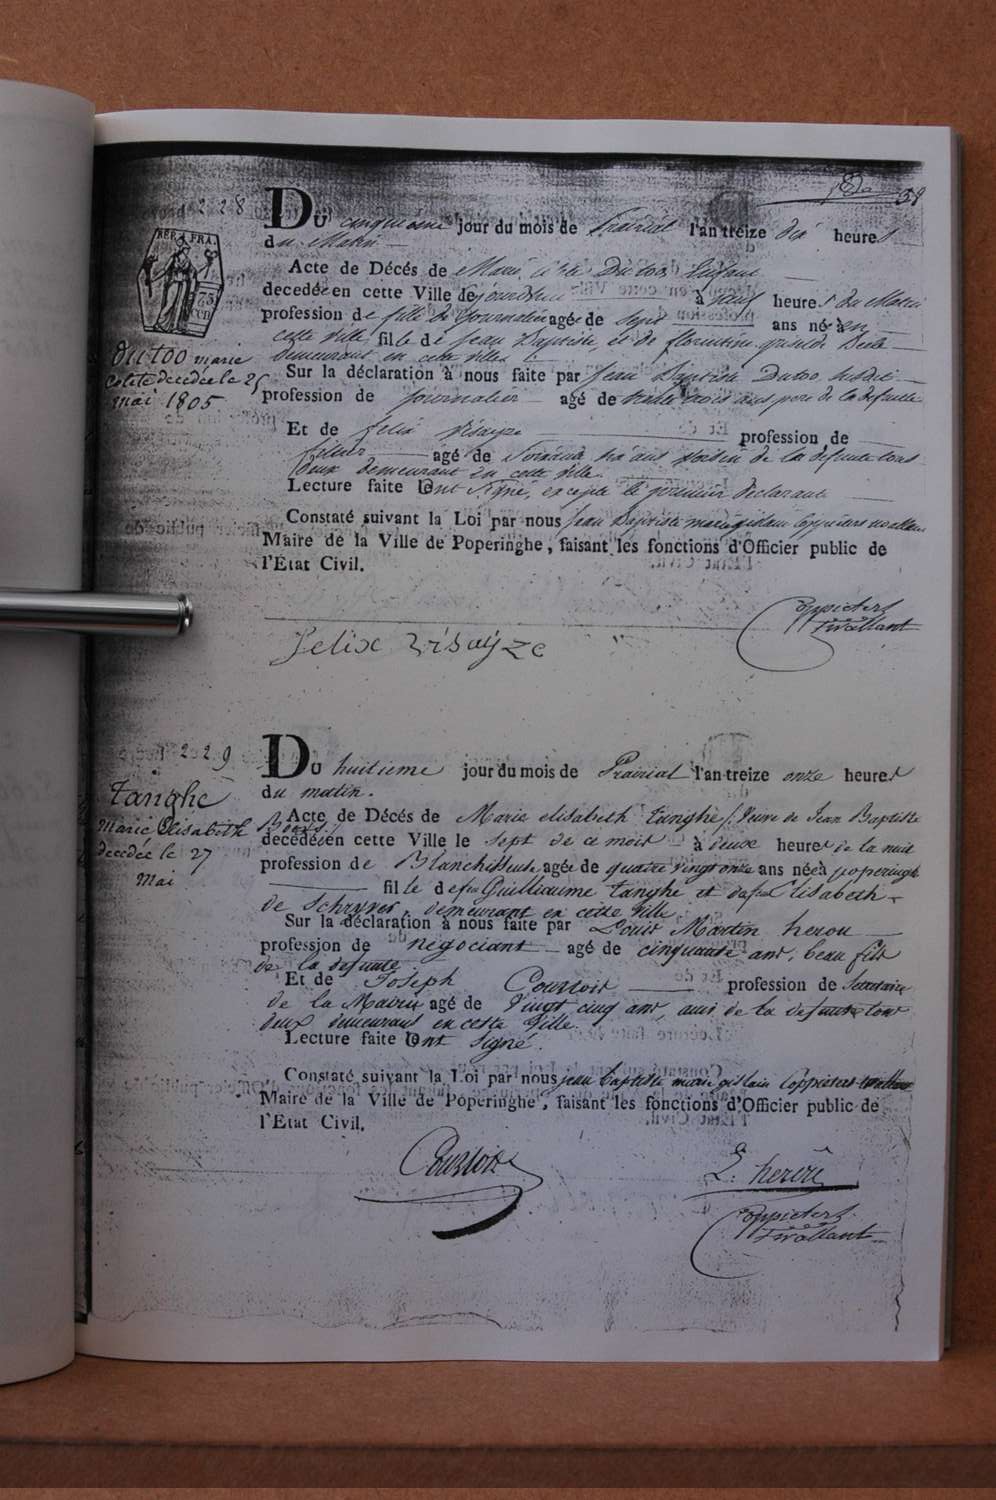 38
228
DU cinquieme jour du mois de Prairial l'an treize dix heures
du Matin
REP. FRA.
75
CEN
Acte de Décés de Marie Dutoo Enfant
decedée en cette Ville de jourdhui à heures du Matin
profession de fille de Journalier agée de Sept ans née à en
cette ville fille de Jean Baptiste, et de florentine
demeurant en cette ville
dutoo marie
decedée le 25
mai 1805
Sur la déclaration à nous faite par Jean Baptiste Dutoo, susdit
profession de Journalier agé de trente trois ans pere de la defunte
Et de felix Visayze profession de
fileur agé de ans voisin de la defunte tous
deux demeurant en cette ville.
Lecture faite ont signé, excepté le premier declarant
Constaté suivant la Loi par nous Jean Baptiste marie gislain Coppieters wallant
Maire de la Ville de Poperinghe, faisant les fonctions d'Officier public de
l'Etat Civil.
Coppieters
Twallant
felix visayze
229
DU huitieme jour du mois de Prairial l'an treize onze heures
du matin.
Tanghe
Marie Elisabeth
decedée le 27
Mai
Acte de Décés de Marie elisabeth Tanghe / Veuve de Jean Baptiste
decédée en cette Ville le sept de ce mois à deux heures de la nuit
profession de Blanchisseuse agée de quatre vingt onze ans née à poperinghe
fille de feu Guilliaume Tanghe et de feue Elisabeth
de Schryver, demeurant en cette Ville
Sur la déclaration à nous faite par Louis Martin herou
profession de négociant agé de cinquante ans, beau fils
de la defunte
Et de Joseph Courtois profession de Secretaire
de la Mairie agé de Vingt cinq ans, ami de la defunte tous
deux demeurans en cette Ville.
Lecture faite ont signé.
Constaté suivant la Loi par nous jean baptiste marie gislain Coppieters wallant
Maire de la Ville de Poperinghe, faisant les fonctions d'Officier public de
l'Etat Civil.
Courtois
L. herou
Coppieters
Twallant